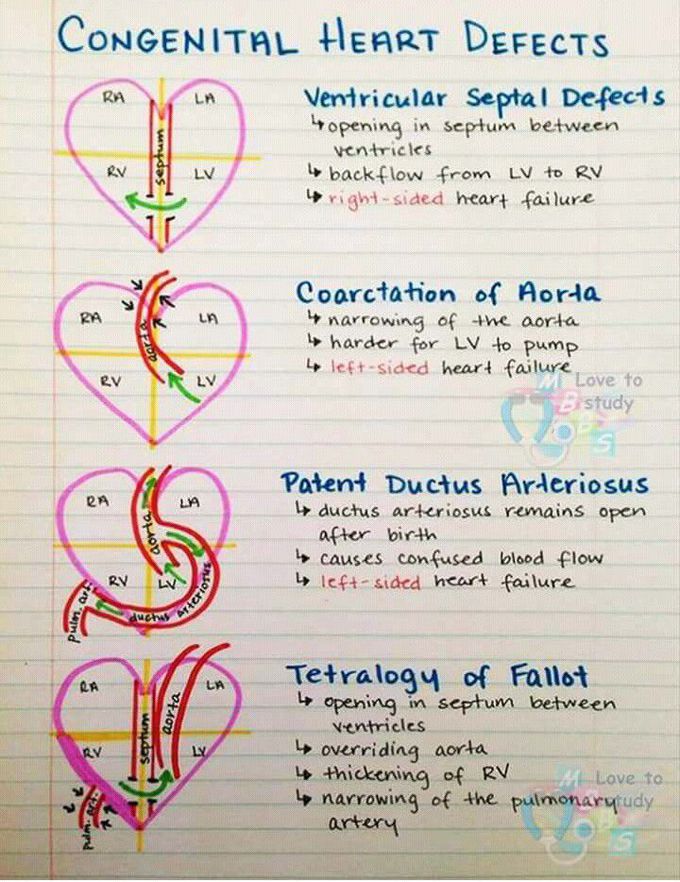 CONGENITAL HEART DEFECTS
RA
LA
septum
RV
LV
Ventricular Septal Defects
↳ opening in septum between
ventricles
↳ backflow from LV to RV
↳ right-sided heart failure
RA
LA
aorta
RV
LV
Coarctation of Aorta
↳ narrowing of the aorta
↳ harder for LV to pump
↳ left-sided heart failure
M Love to
B study
B S
RA
LA
aorta
RV
LV
pulm. art.
ductus arteriosus
Patent Ductus Arteriosus
↳ ductus arteriosus remains open
after birth
↳ causes confused blood flow
↳ left-sided heart failure
RA
LA
aorta
septum
RV
LV
pulm. art.
Tetralogy of Fallot
↳ opening in septum between
ventricles
↳ overriding aorta
↳ thickening of RV
↳ narrowing of the pulmonary
artery
M Love to
B study
B S